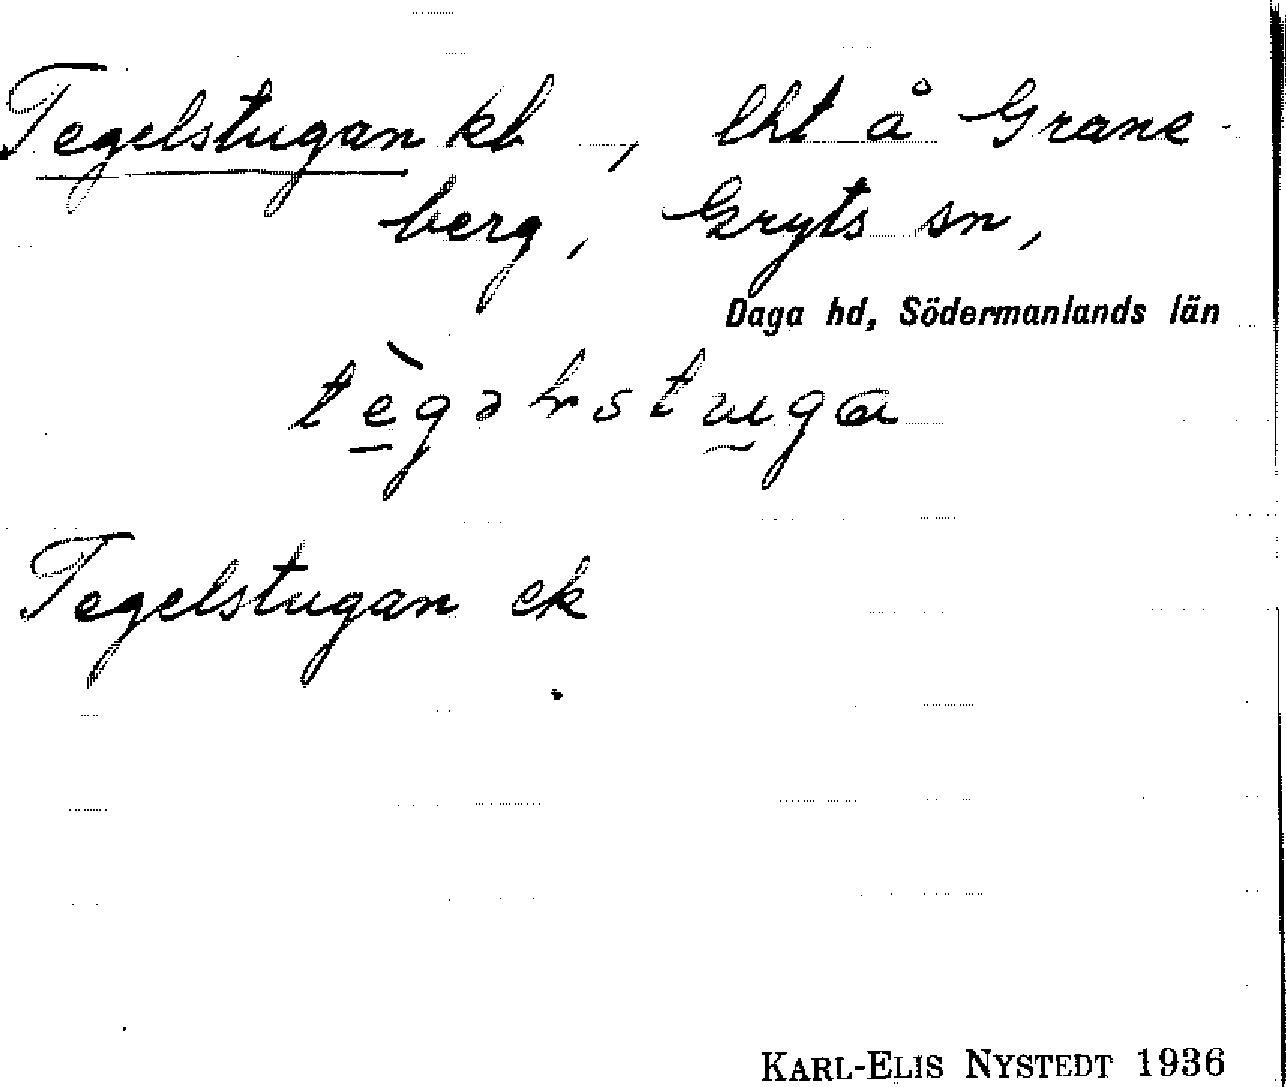 Tegelstugan kb, lht å Grane-
berg, Gryts sn,
Daga hd, Södermanlands län
Tegelstugan ek
KARL-ELIS NYSTEDT 1936